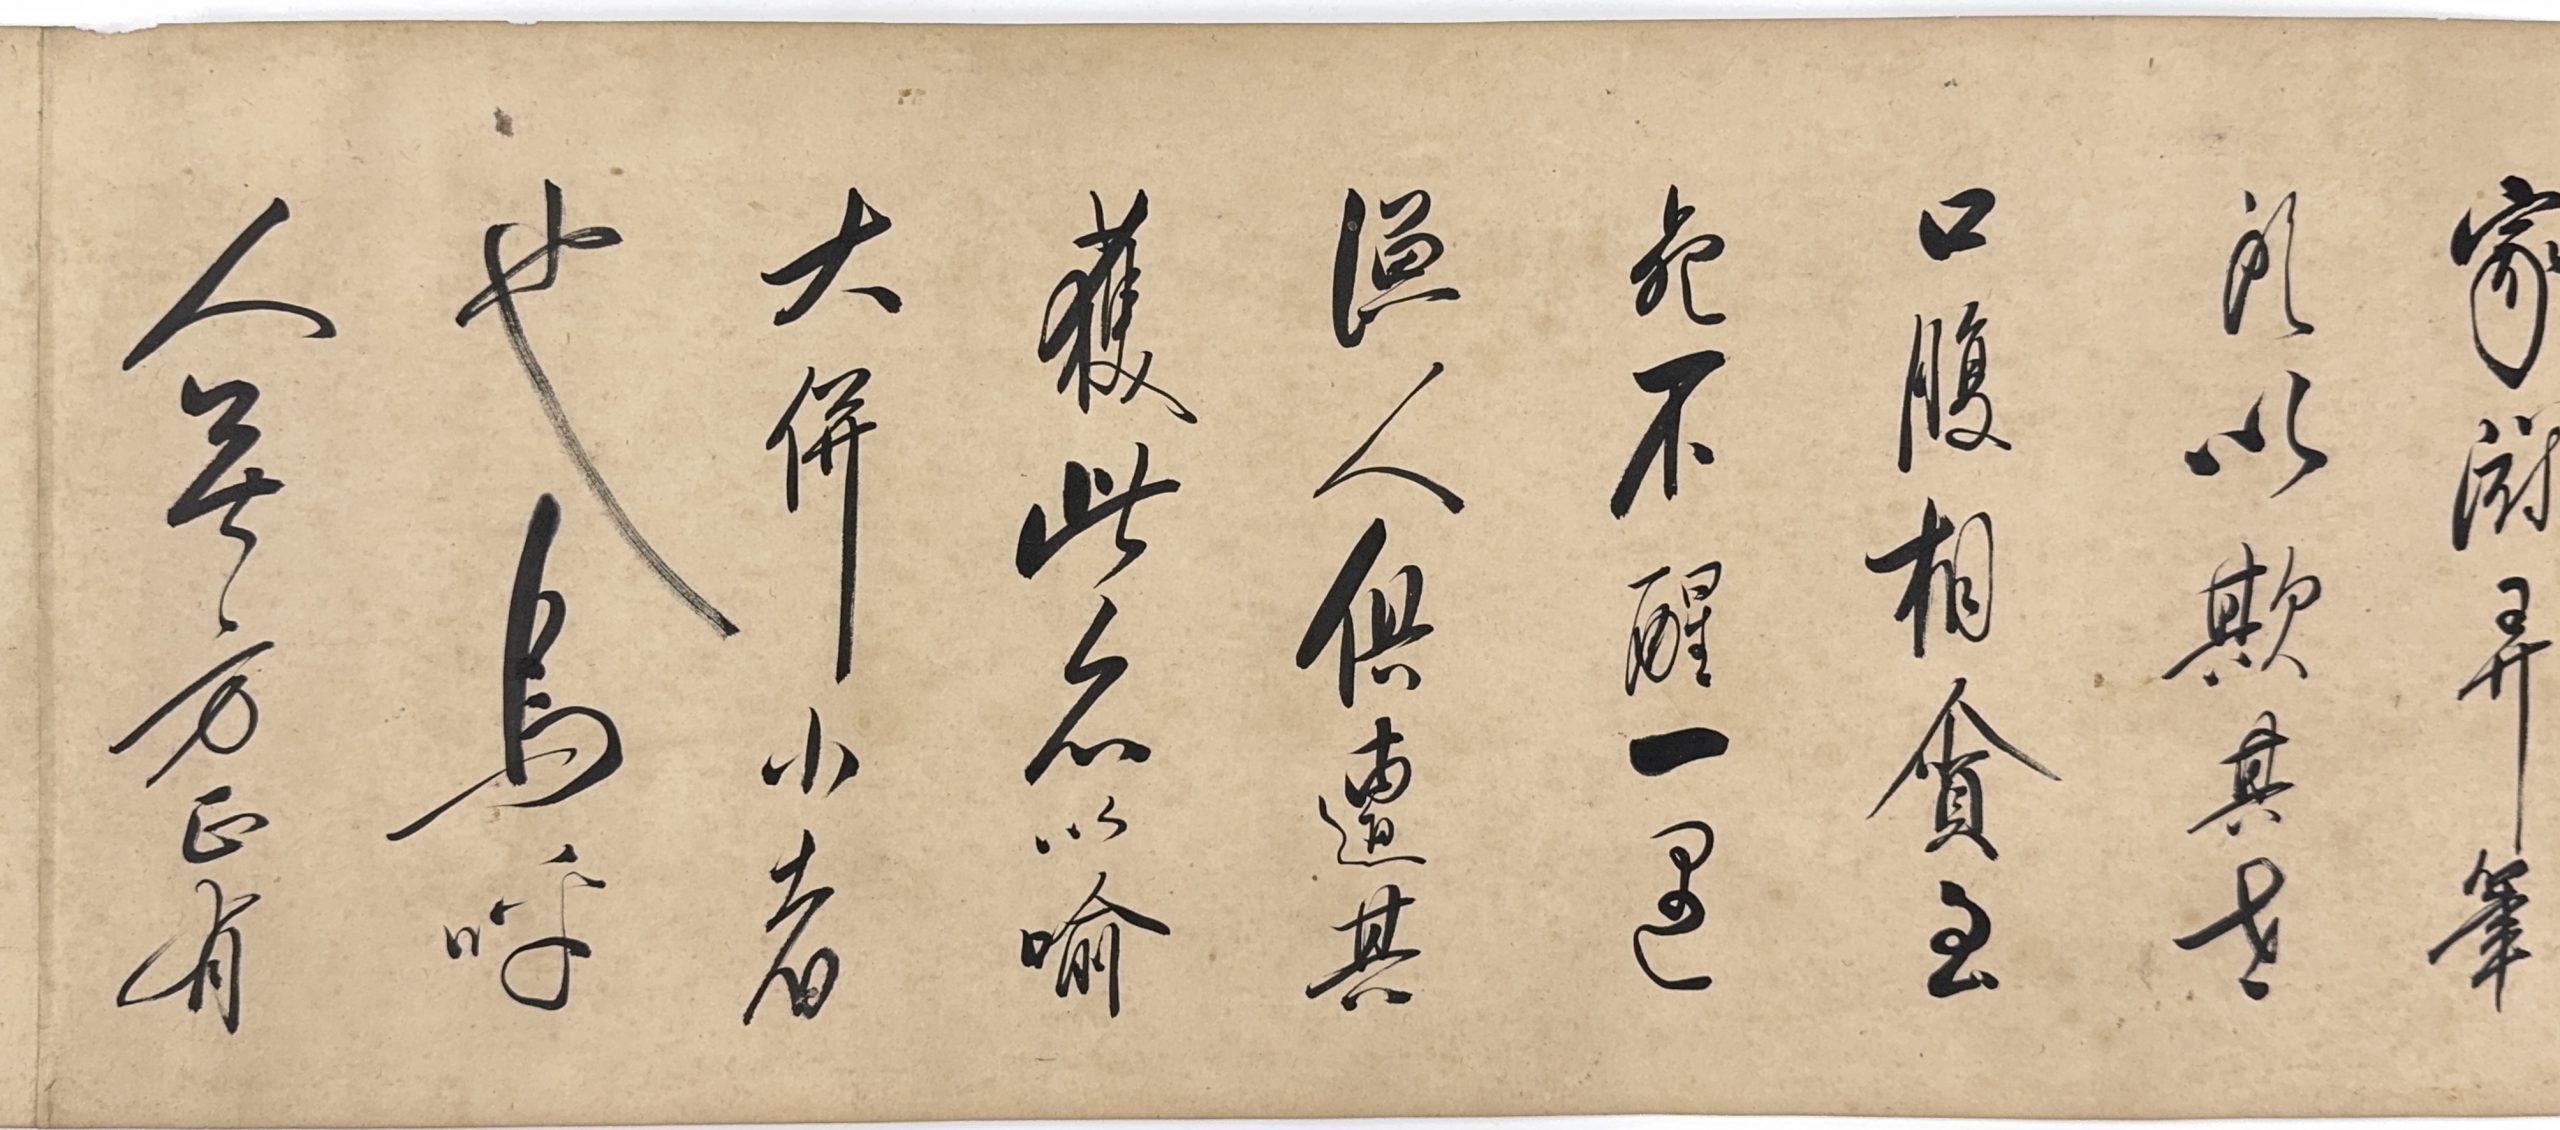 家弄筆
以欺其
口腹相貪至
死不醒一遇
漁人俱遭其
獲此以喻
大併小者
也烏呼
人方正有